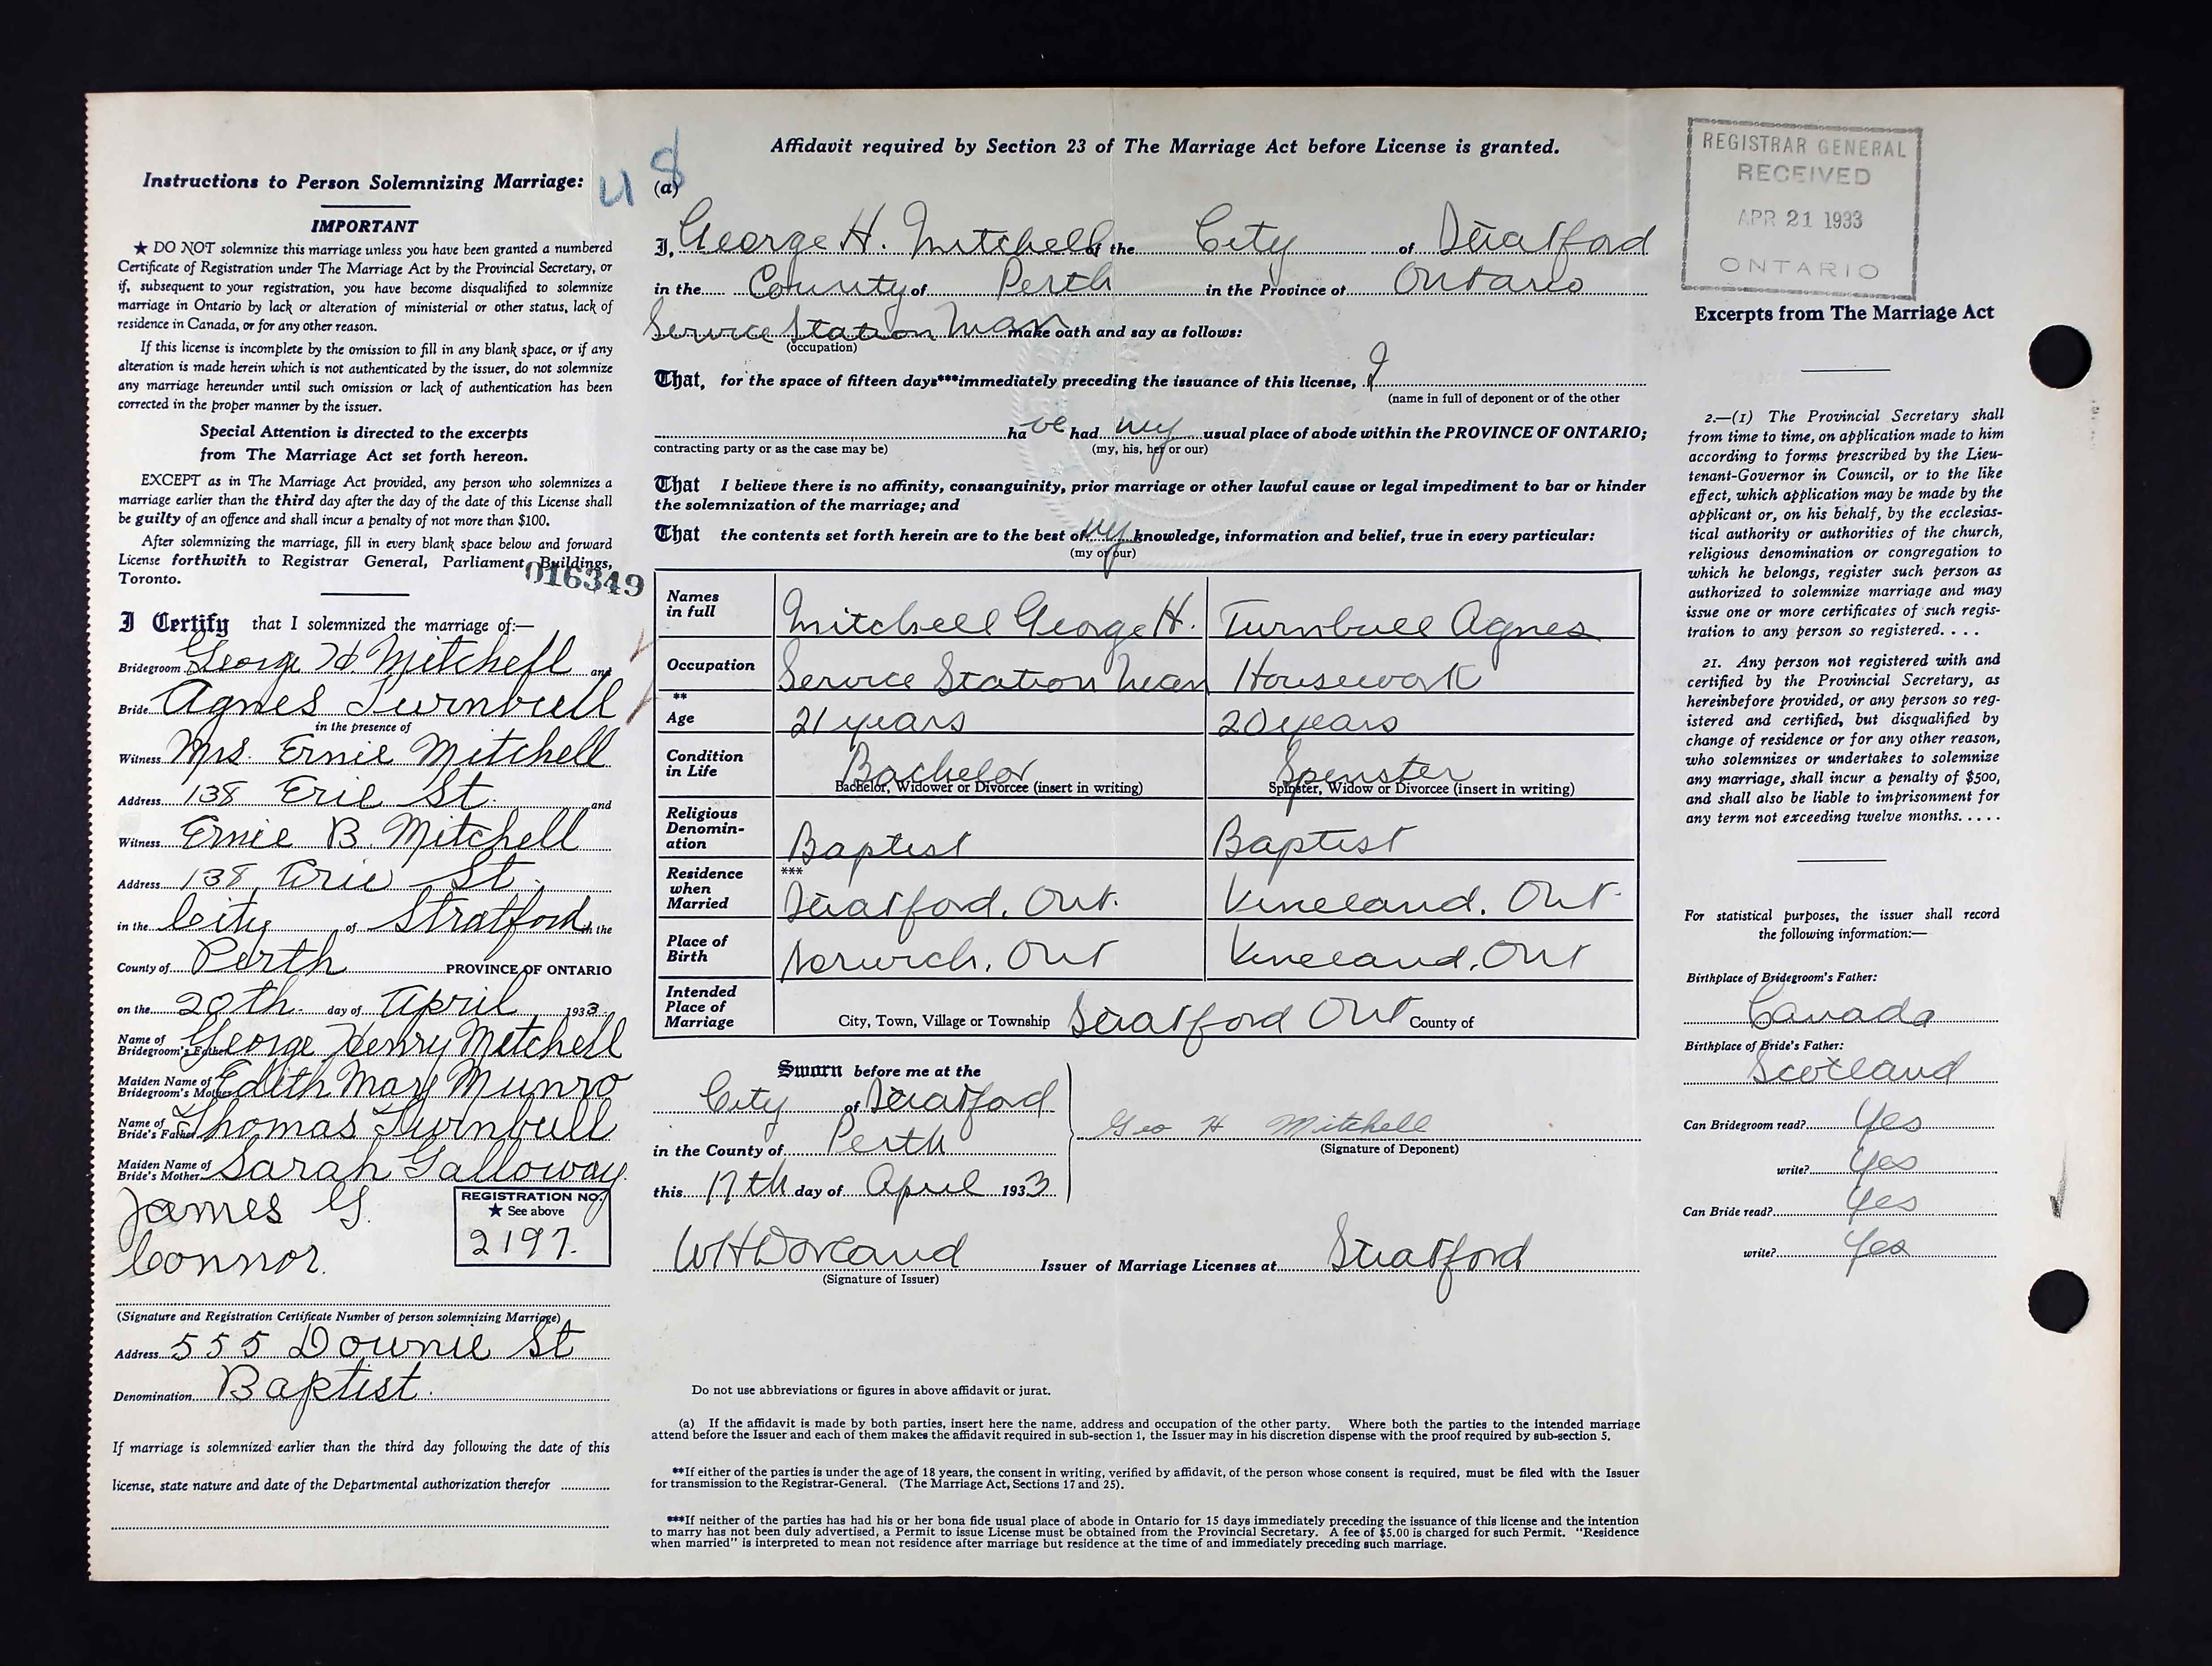 Instructions to Person Solemnizing Marriage:
IMPORTANT
★ DO NOT solemnize this marriage unless you have been granted a numbered
Certificate of Registration under The Marriage Act by the Provincial Secretary, or
if, subsequent to your registration, you have become disqualified to solemnize
marriage in Ontario by lack or alteration of ministerial or other status, lack of
residence in Canada, or for any other reason.
If this license is incomplete by the omission to fill in any blank space, or if any
alteration is made herein which is not authenticated by the issuer, do not solemnize
any marriage hereunder until such omission or lack of authentication has been
corrected in the proper manner by the issuer.
Special Attention is directed to the excerpts
from The Marriage Act set forth hereon.
EXCEPT as in The Marriage Act provided, any person who solemnizes a
marriage earlier than the third day after the day of the date of this License shall
be guilty of an offence and shall incur a penalty of not more than $100.
After solemnizing the marriage, fill in every blank space below and forward
License forthwith to Registrar General, Parliament Buildings,
Toronto.
016349
I Certify that I solemnized the marriage of:—
Bridegroom George H Mitchell and
Bride Agnes Turnbull
in the presence of
Witness Mrs. Ernie Mitchell
Address 138 Erie St. and
Witness Ernie B. Mitchell
Address 138 Erie St.
in the City of Stratford in the
County of Perth PROVINCE OF ONTARIO
on the 20th day of April 1933
Name of Bridegroom's Father George Henry Mitchell
Maiden Name of Bridegroom's Mother Edith May Munro
Name of Bride's Father Thomas Turnbull
Maiden Name of Bride's Mother Sarah Galloway
James G.
Connor.
REGISTRATION NO.
★ See above
2197.
(Signature and Registration Certificate Number of person solemnizing Marriage)
Address 555 Downie St
Denomination Baptist.
If marriage is solemnized earlier than the third day following the date of this
license, state nature and date of the Departmental authorization therefor
48
Affidavit required by Section 23 of The Marriage Act before License is granted.
(a)
I, George H. Mitchell of the City of Stratford
in the County of Perth in the Province of Ontario
Service Station Man make oath and say as follows:
(occupation)
That, for the space of fifteen days***immediately preceding the issuance of this license, I
(name in full of deponent or of the other
have had my usual place of abode within the PROVINCE OF ONTARIO;
contracting party or as the case may be) (my, his, her or our)
That I believe there is no affinity, consanguinity, prior marriage or other lawful cause or legal impediment to bar or hinder
the solemnization of the marriage; and
That the contents set forth herein are to the best of my knowledge, information and belief, true in every particular:
(my or our)
Names in full Mitchell George H. Turnbull Agnes
Occupation Service Station Man Housework
**
Age 21 years 20 years
Condition in Life Bachelor Spenster
Bachelor, Widower or Divorcee (insert in writing) Spinster, Widow or Divorcee (insert in writing)
Religious Denomin-ation Baptist Baptist
Residence when Married *** Stratford, Ont. Vineland. Ont.
Place of Birth Norwich, Ont Vineland, Ont
Intended Place of Marriage City, Town, Village or Township Stratford Ont County of
Sworn before me at the
City of Stratford
in the County of Perth
this 17th day of April 1933
Geo H Mitchell
(Signature of Deponent)
WH Dorland Issuer of Marriage Licenses at Stratford
(Signature of Issuer)
Do not use abbreviations or figures in above affidavit or jurat.
(a) If the affidavit is made by both parties, insert here the name, address and occupation of the other party. Where both the parties to the intended marriage
attend before the Issuer and each of them makes the affidavit required in sub-section 1, the Issuer may in his discretion dispense with the proof required by sub-section 5.
**If either of the parties is under the age of 18 years, the consent in writing, verified by affidavit, of the person whose consent is required, must be filed with the Issuer
for transmission to the Registrar-General. (The Marriage Act, Sections 17 and 25).
***If neither of the parties has had his or her bona fide usual place of abode in Ontario for 15 days immediately preceding the issuance of this license and the intention
to marry has not been duly advertised, a Permit to issue License must be obtained from the Provincial Secretary. A fee of $5.00 is charged for such Permit. "Residence
when married" is interpreted to mean not residence after marriage but residence at the time of and immediately preceding such marriage.
REGISTRAR GENERAL
RECEIVED
APR 21 1933
ONTARIO
Excerpts from The Marriage Act
2.—(1) The Provincial Secretary shall
from time to time, on application made to him
according to forms prescribed by the Lieu-
tenant-Governor in Council, or to the like
effect, which application may be made by the
applicant or, on his behalf, by the ecclesias-
tical authority or authorities of the church,
religious denomination or congregation to
which he belongs, register such person as
authorized to solemnize marriage and may
issue one or more certificates of such regis-
tration to any person so registered. . . .
21. Any person not registered with and
certified by the Provincial Secretary, as
hereinbefore provided, or any person so reg-
istered and certified, but disqualified by
change of residence or for any other reason,
who solemnizes or undertakes to solemnize
any marriage, shall incur a penalty of $500,
and shall also be liable to imprisonment for
any term not exceeding twelve months. . . . .
For statistical purposes, the issuer shall record
the following information:—
Birthplace of Bridegroom's Father:
Canada
Birthplace of Bride's Father:
Scotland
Can Bridegroom read? Yes
write? Yes
Can Bride read? Yes
write? Yes